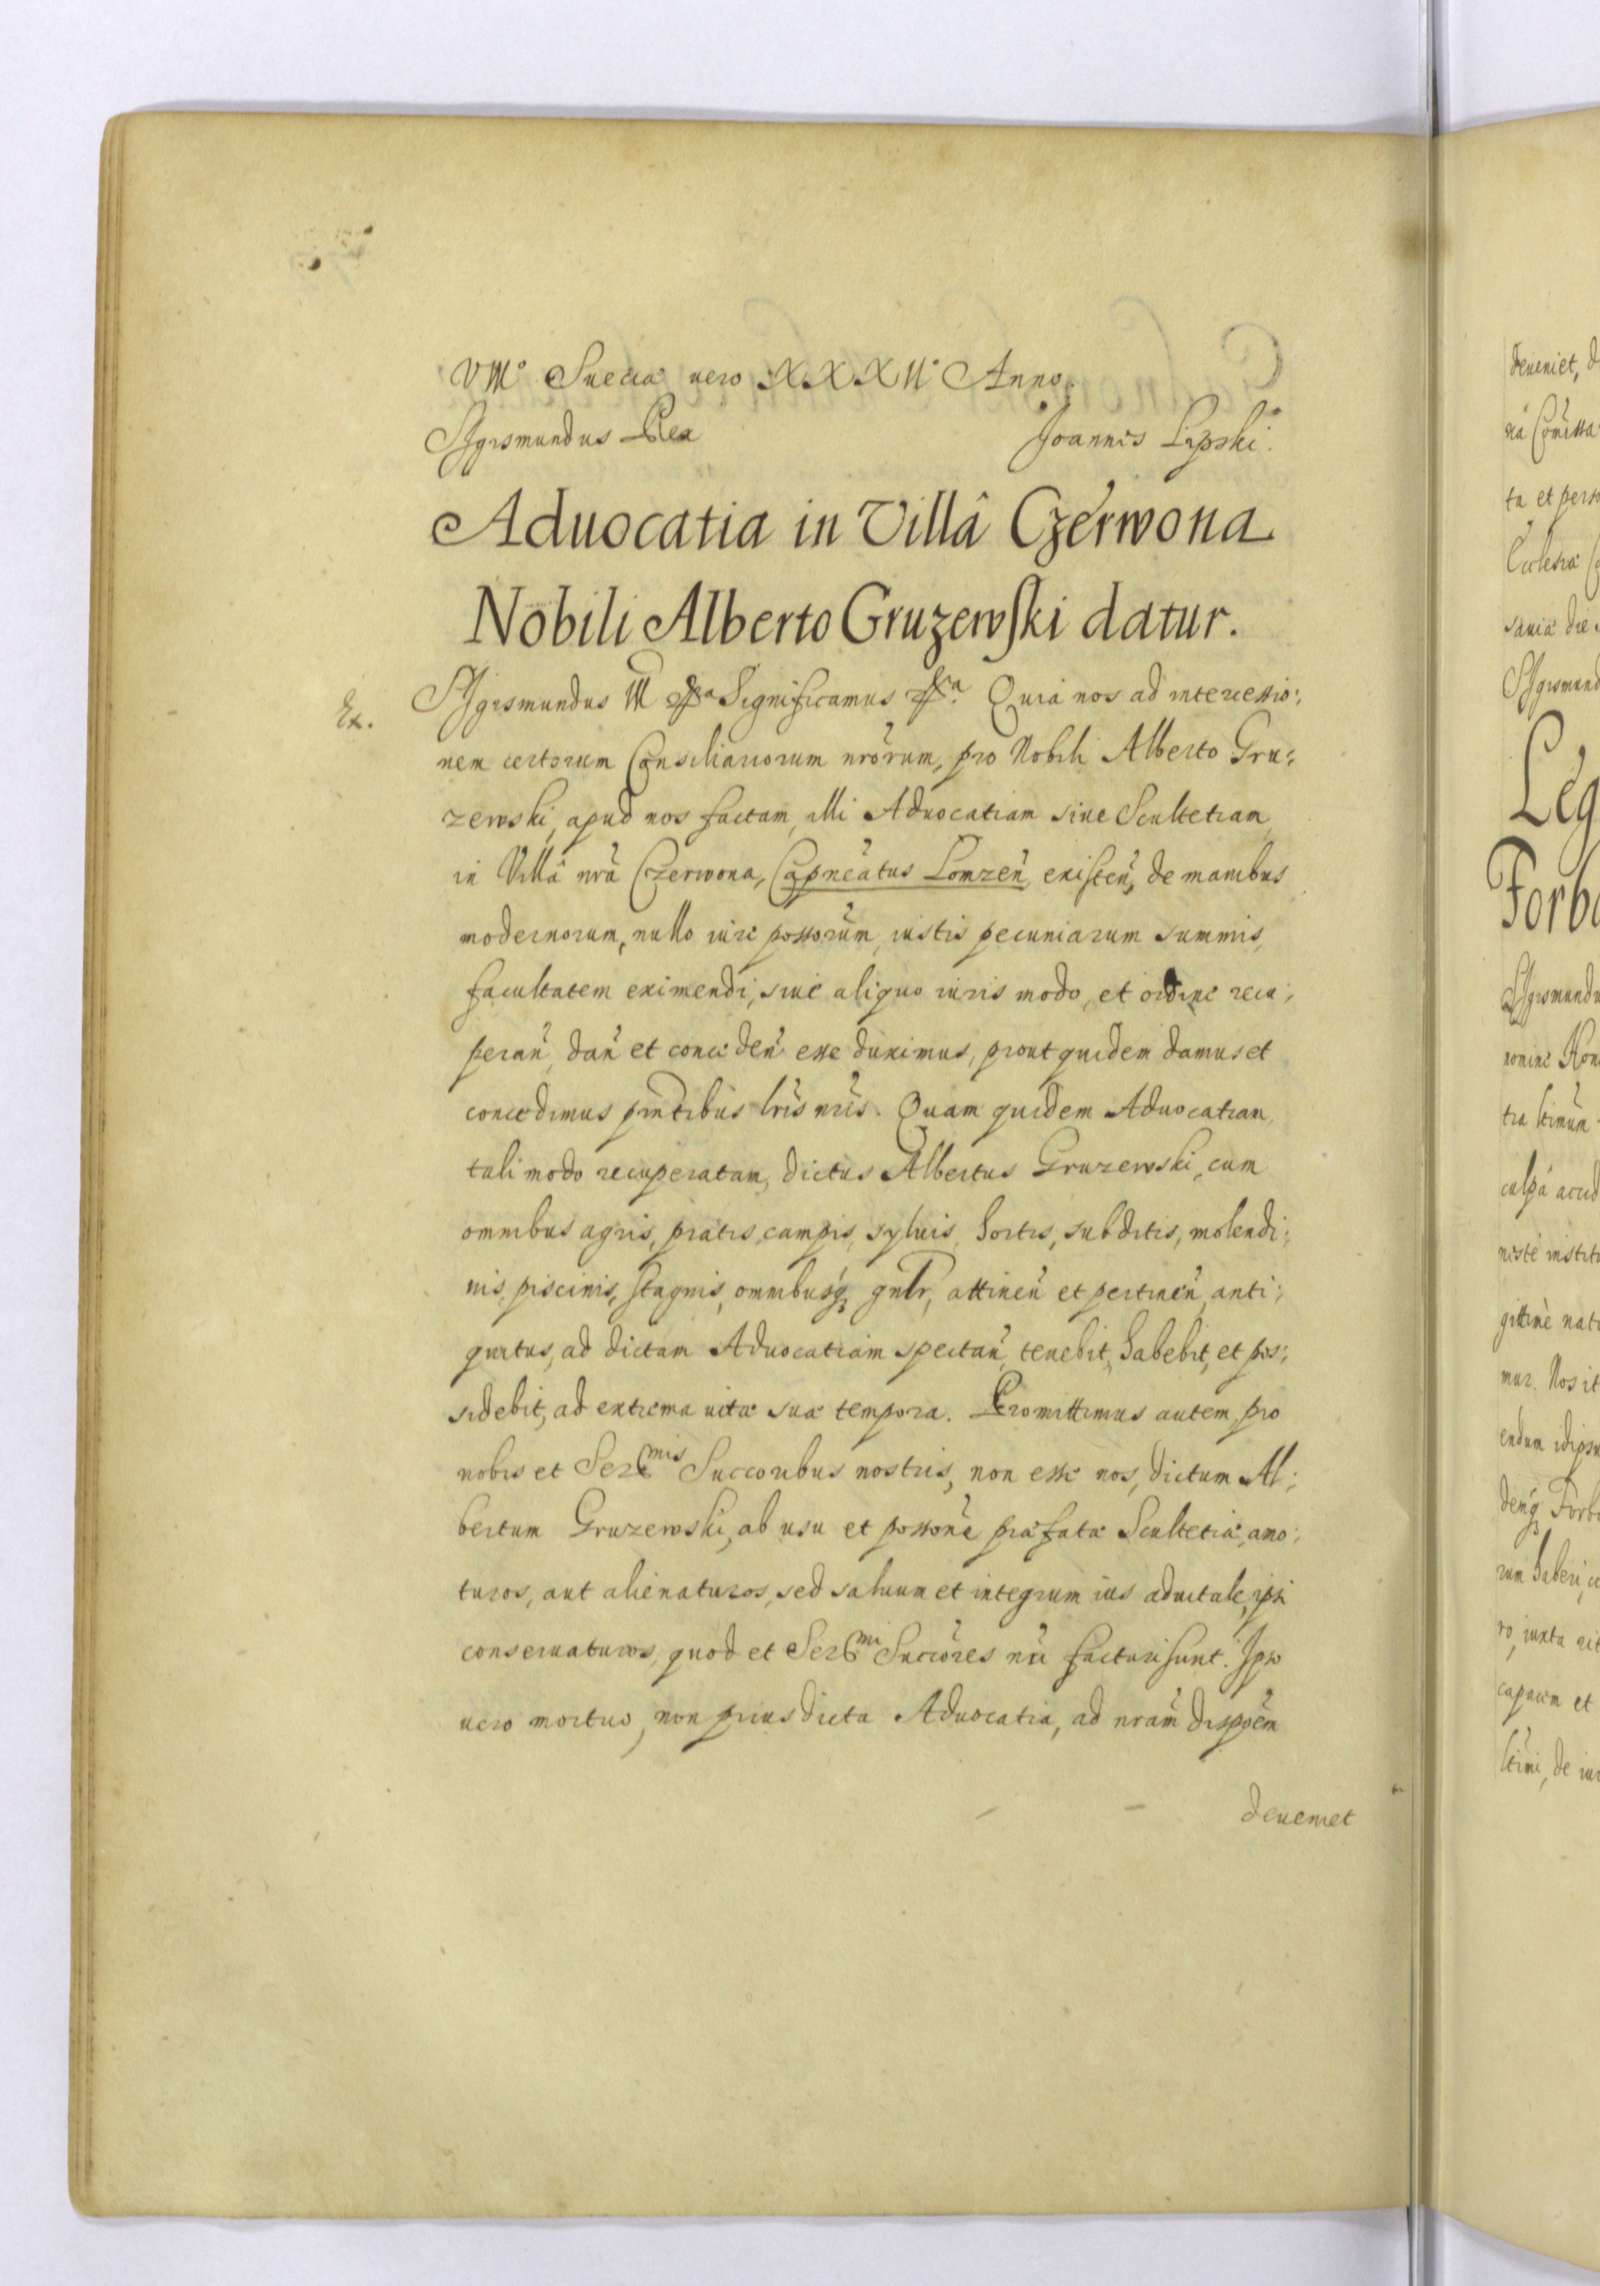 VIII° Sueciæ uero XXXII° Anno.
Sigismundus Rex Joannes Lipski.
Aduocatia in Villâ Czerwona
Nobili Alberto Gruzewski datur.
Ex. Sigismundus III Significamus Quia nos ad intercessio:
nem certorum Consiliariorum nrorum, pro Nobili Alberto Gru:
zewski, apud nos factam, illi Aduocatiam siue Scultetiam
in Villâ nrâ Czerwona, Capneatus Lomzen existen, de manibus
modernorum, nullo iure possorum, iustis pecuniarum summis,
facultatem eximendi, siue aliquo iuris modo, et ordine recu:
peran, dan et conceden esse duximus, prout quidem damus et
concedimus pntibus lris nris. Quam quidem Aduocatian
tali modo recuperatam, dictus Albertus Gruzewski, cum
omnibus agris, pratis, campis, syluis, hortis, subditis, molendi:
nis, piscinis, stagnis, omnibusq gnlr, attinen et pertinen, anti:
quitus, ad dictam Aduocatiam spectan, tenebit, habebit, et pos:
sidebit, ad extrema uitæ suæ tempora. Promittimus autem pro
nobis et Sermis Succoribus nostris, non esse nos, dictum Al:
bertum Gruzewski, ab usu et possone præfatæ Scultetiæ, amo:
turos, aut alienaturos, sed saluum et integrum ius aduitale, ipsi
conseruaturos, quod et Sermi Succores nri facturi sunt. Ipso
uero mortuo, non prius dicta Aduocatia, ad nram dispoem
deueniet
deueniet, d
ta et perso
Leg
Forb
Sigismundu
tali modo
culpâ accid
mur. Nos it
capacem et